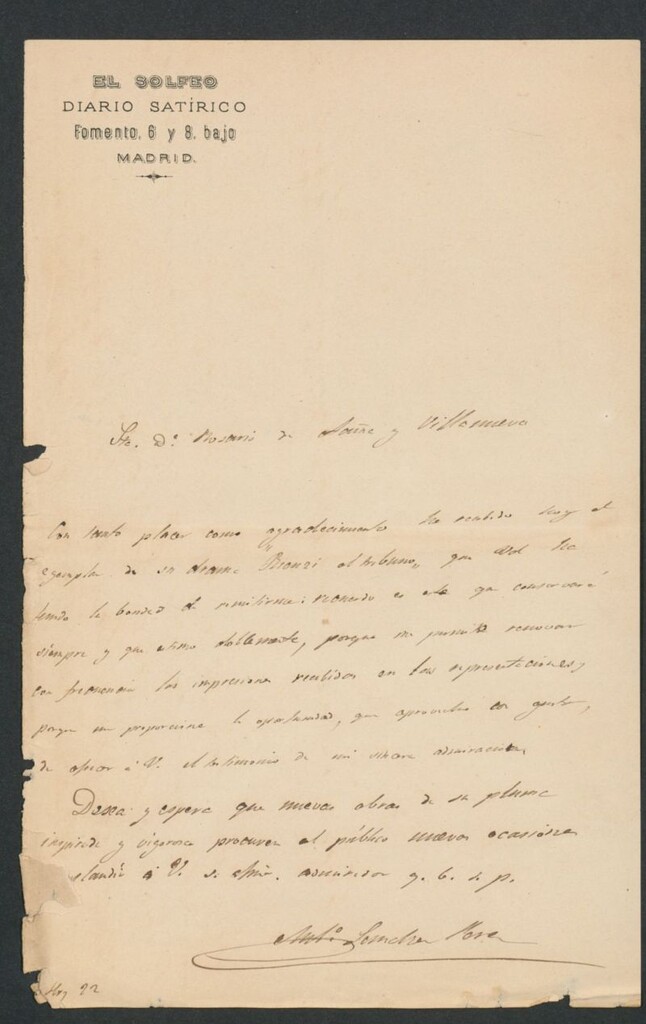 EL SOLFEO
DIARIO SATÍRICO
Fomento, 6 y 8, bajo
MADRID.
Sra. Dª Rosario de Acuña y Villanueva
Con tanto placer como agradecimiento he recibido hoy el
ejemplar de su drama "Rienzi el tribuno" que Vd ha
tenido la bondad de remitirme: recuerdo es este que conservaré
siempre y que estimo doblemente, porque me permite renovar
con frecuencia las impresiones recibidas en las representaciones,
porque me proporciona la oportunidad, que aprovecho con gusto,
de ofrecer á V. el testimonio de mi sincera admiracion.
Desea y espera que nuevas obras de su pluma
inspirada y vigorosa procuren al público nuevas ocasiones
á V. su admirador q. b. s. p.
Antº Sanchez
Hoy 22